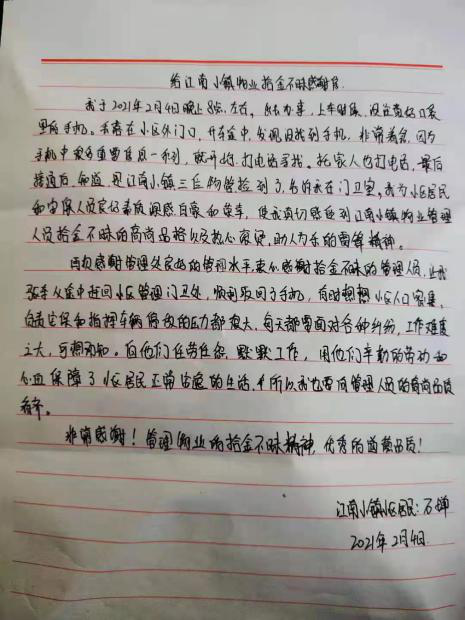 给江南小镇物业拾金不昧感谢信
我于2021年2月4日晚上8点左右，外出办事，上车时候，没注意好口袋
里的手机。丢落在小区外门口，开车途中，发现没找到手机，非常着急，因为
手机中很多重要信息一系列，就开始打电话寻找，托家人也打电话，最后
接通后，知道，是江南小镇三位物管捡到了，
和
人员拾金不昧的高尚品格以及热心
助人为乐的雷锋精神。
再想感谢管理处良好的管理水平衷心感谢拾金不昧的管理人员，让我
从途中赶回小区管理门卫处，顺利取回了手机，有时想想小区人口密集，
和指挥车辆停放的压力都很大，每天都要面对各种纠纷，工作难度
之大，可想而知。而他们任劳任怨，默默工作，用他们辛勤的劳动和
心血保障了小区居民正常
的生活，所以我也要向管理人员的高尚品质
看齐。
非常感谢！管理物业的拾金不昧精神，优秀的道德品质！
江南小镇小区居民：石
2021年2月4日